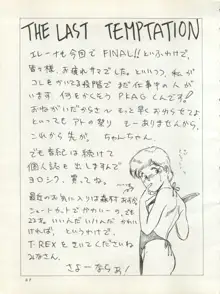 THE LAST TEMPTATION
エレーナも今回でFINAL!!というわけで、
皆々様、お疲れサマでした。といいつつ、私が
コレをかいてる段階でまだ仕事中の人が
います 何をかくそう PLAGくんです!
おねがいだから〜 もっと早くおわらせてよ
といっても アトの祭り もーありませんから、
これから先が。ちゃんちゃん
でも
は続けて
個人誌も出しますんで
ヨロシク、買ってね。
最近のお気に入りは森村
ショートカットで
いいんだ いいんだ かわい
ければ、というわけで、
T-REXをきいてくださいね
みなさん。
さよーならぁ!